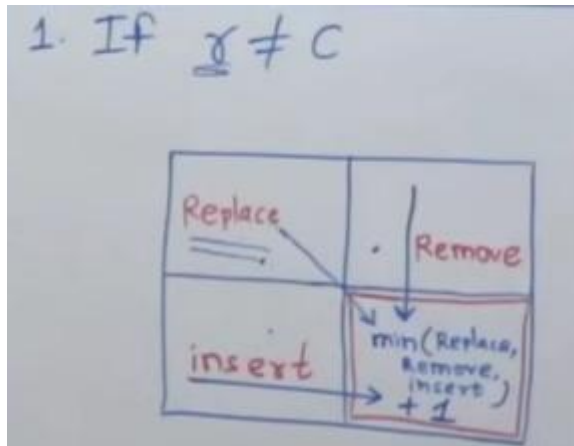 1. If r ≠ C
Replace
Remove
insert
min(Replace,
Remove,
insert)
+ 1